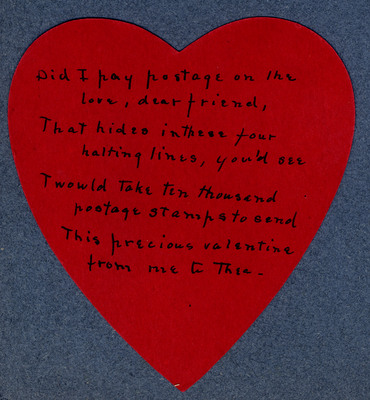 Did I pay postage on the
love, dear friend,
That hides in these four
halting lines, you'd see
Twould take ten thousand
postage stamps to send
This precious valentine
from me to Thee.